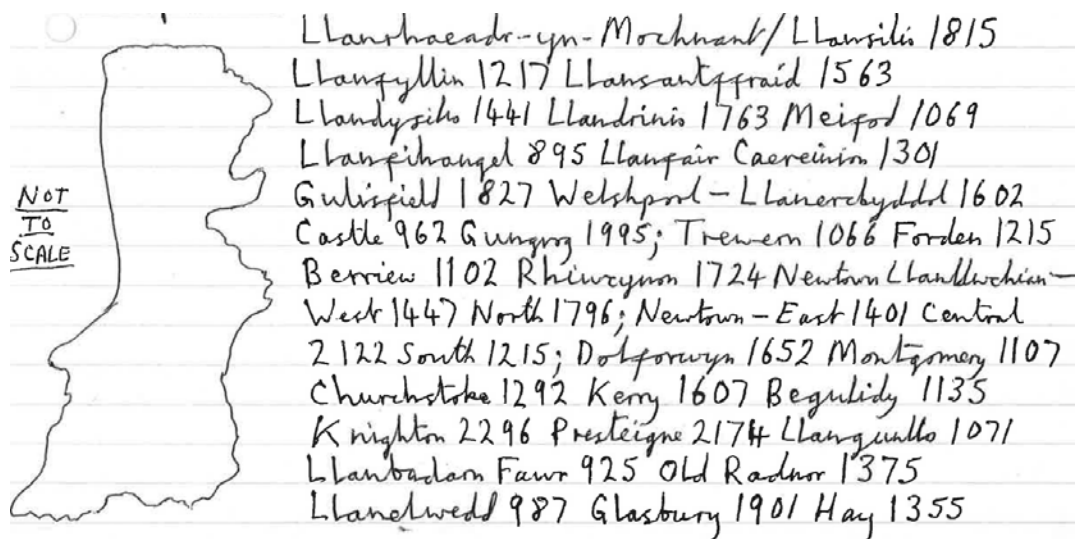 Llanrhaeadr-yn-Mochnant/Llansilin 1815
Llanfyllin 1217 Llansantffraid 1563
Llandysilio 1441 Llandrinio 1763 Meifod 1069
Llanfihangel 895 Llanfair Caereinion 1301
Guilsfield 1827 Welshpool - Llanerchyddol 1602
NOT
TO
SCALE
Castle 962 Gungrog 1995; Trewern 1066 Forden 1215
Berriew 1102 Rhiwcynon 1724 Newtown Llanllwchian-
West 1447 North 1796; Newtown - East 1401 Central
2122 South 1215; Dolforwyn 1652 Montgomery 1107
Churchstoke 1292 Kerry 1607 Beguildy 1135
Knighton 2296 Presteigne 2174 Llangunllo 1071
Llanbadarn Fawr 925 Old Radnor 1375
Llanelwedd 987 Glasbury 1901 Hay 1355